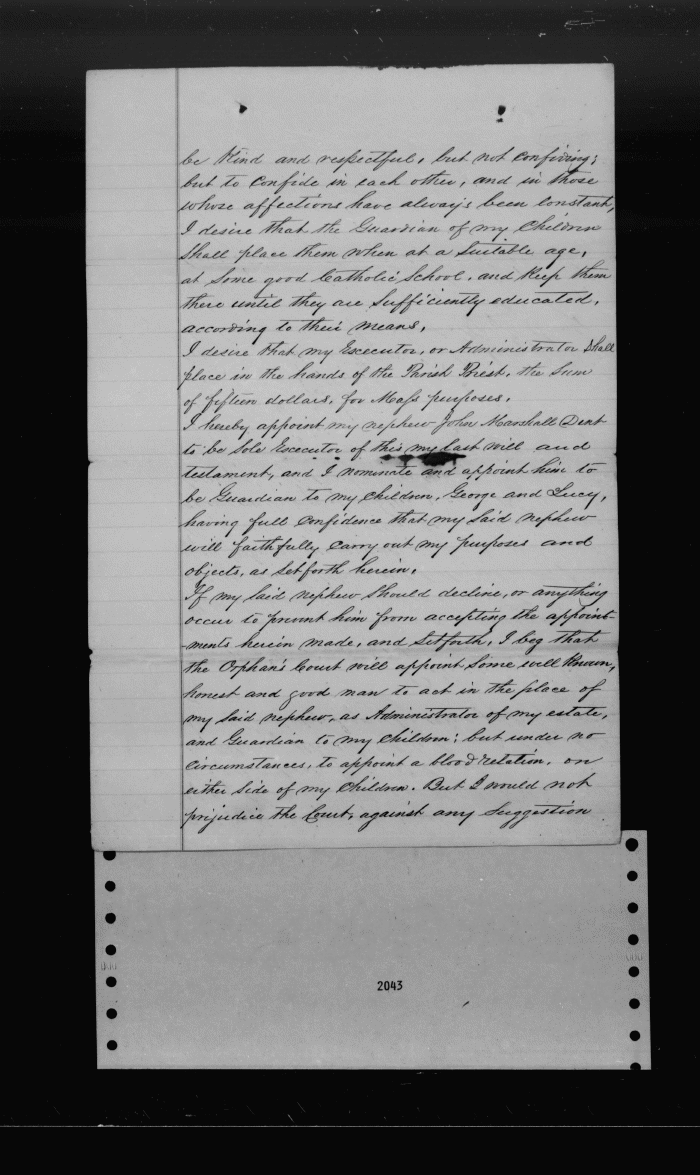 be Kind and respectful, but not confiding;
but to confide in each other, and in those
whose affections have always been constant,
I desire that the Guardian of my Children
Shall place them when at a Suitable age,
at Some good Catholic School, and Keep them
there until they are Sufficiently educated,
according to their means,
I desire that my Excecutor, or Administrator Shall
place in the hands of the Parish Priest, the Sum
of fifteen dollars, for Mass purposes.
I hereby appoint my nephew John Marshall Dent
to be Sole Excecutor of this my last will and
testament, and I nominate and appoint him to
be Guardian to my Children, George and Lucy,
having full Confidence that my Said nephew
will faithfully carry out my purposes and
objects, as Set forth herein.
If my Said nephew Should decline, or anything
occur to prevent him from accepting the appoint-
-ments herein made, and Set forth, I beg that
the Orphan's Court will appoint Some well Known,
honest and good man to act in the place of
my Said nephew, as Administrator of my estate,
and Guardian to my Children; but under no
Circumstances, to appoint a blood relation, on
either Side of my Children. But I would not
prejudice the Court, against any Suggestion
2043